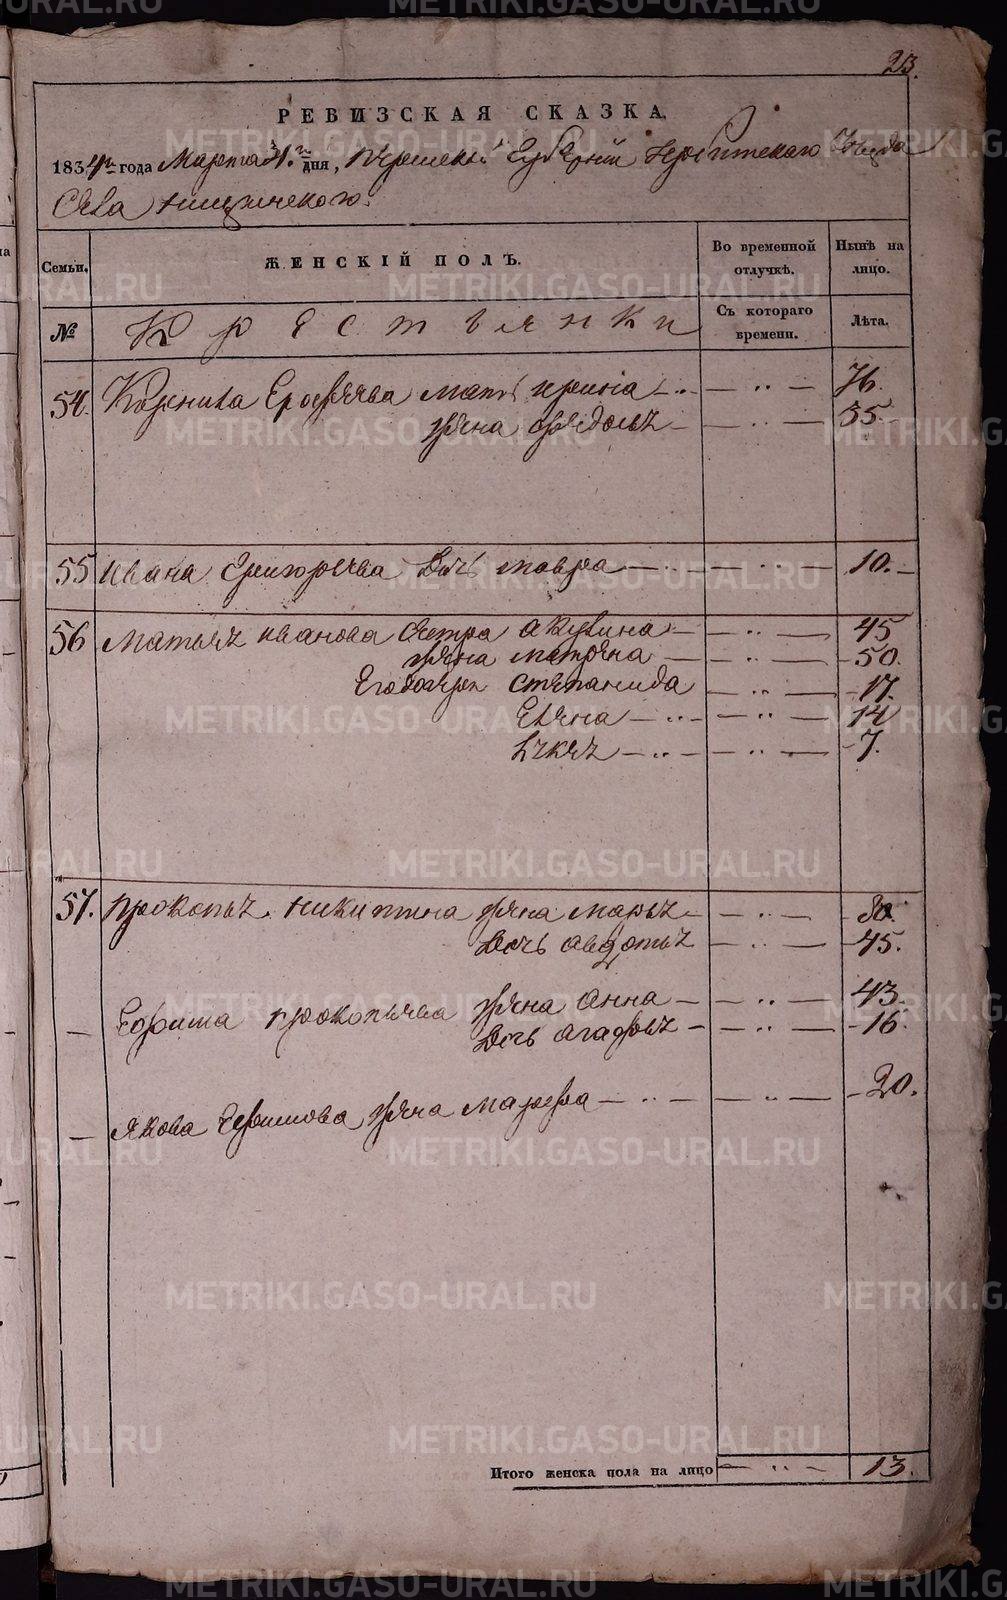 23.
РЕВИЗСКАЯ СКАЗКА,
1834го года Марта 31го дня, Пермской Губернии Ирбитского Уезда
Села
Семьи. ЖЕНСКІЙ ПОЛЪ. Во временной отлучкѣ. Нынѣ на лицо.
№ Крестьянки Съ котораго времени. Лѣта.
54. Корнила Ерофеева мать 76.
жена 55.
55 Ивана Григорьева дочь мавра 10.
56 Матвея иванова сестра акулина 45
жена матрена 50.
Его дочери степанида 17.
Елена 14
7.
57. Прокопья никитина жена марья 80.
дочь авдотья 45.
— Ефима прокопьева жена анна 43.
дочь агафья 16.
— Якова Ефимова жена марфа 20.
Итого женска пола на лицо 13.
METRIKI.GASO-URAL.RU